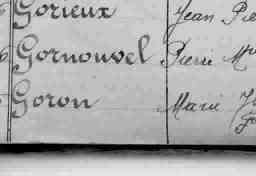 Gorieux Jean Pie
Gornouvel Pierre M
Goron Marie